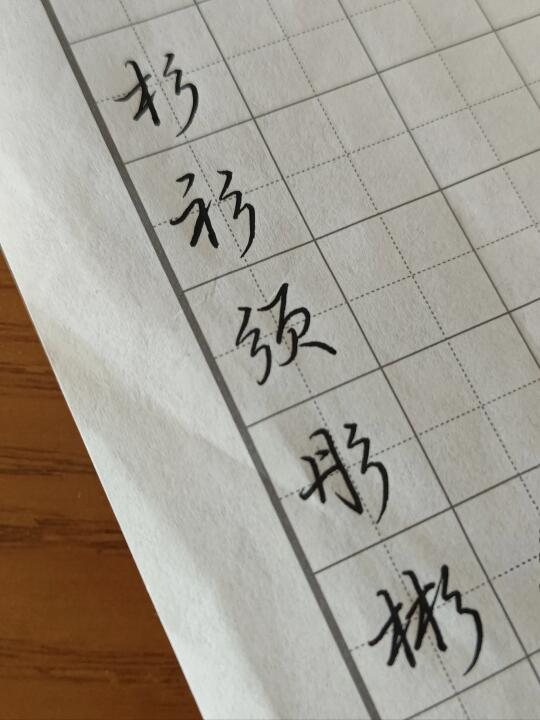 杉
衫
须
彤
彬